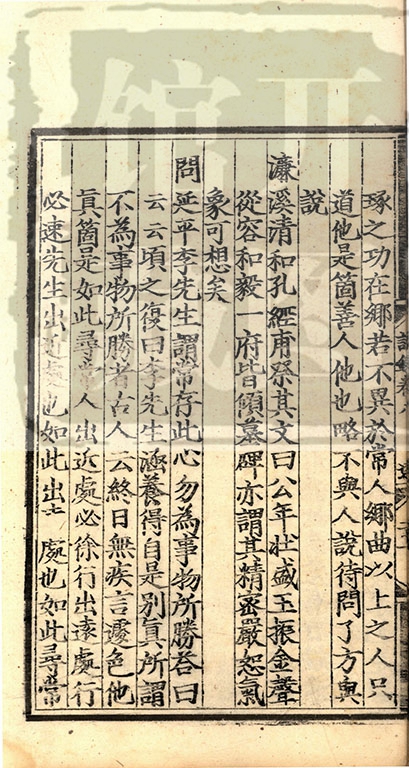 琢之功在鄉若不異於常人鄉曲以上之人只
道他是箇善人他也略不與人說待問了方與
說
濂溪清和孔經甫祭其文曰公年壯盛玉振金聲
從容和毅一府皆傾墓碑亦謂其精密嚴恕氣
象可想矣
問延平李先生謂常存此心勿為事物所勝答曰
云云頃之復曰李先生涵養得自是别真所謂
不為事物所勝者古人云終日無疾言遽色他
真箇是如此尋常人出近處必徐行出遠處行
必速先生出近處也如此出遠處也如此尋常